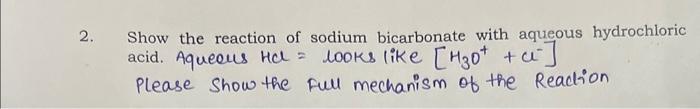 2. Show the reaction of sodium bicarbonate with aqueous hydrochloric
acid. Aqueous HCl = looks like [H3O+ + Cl-]
Please show the full mechanism of the Reaction